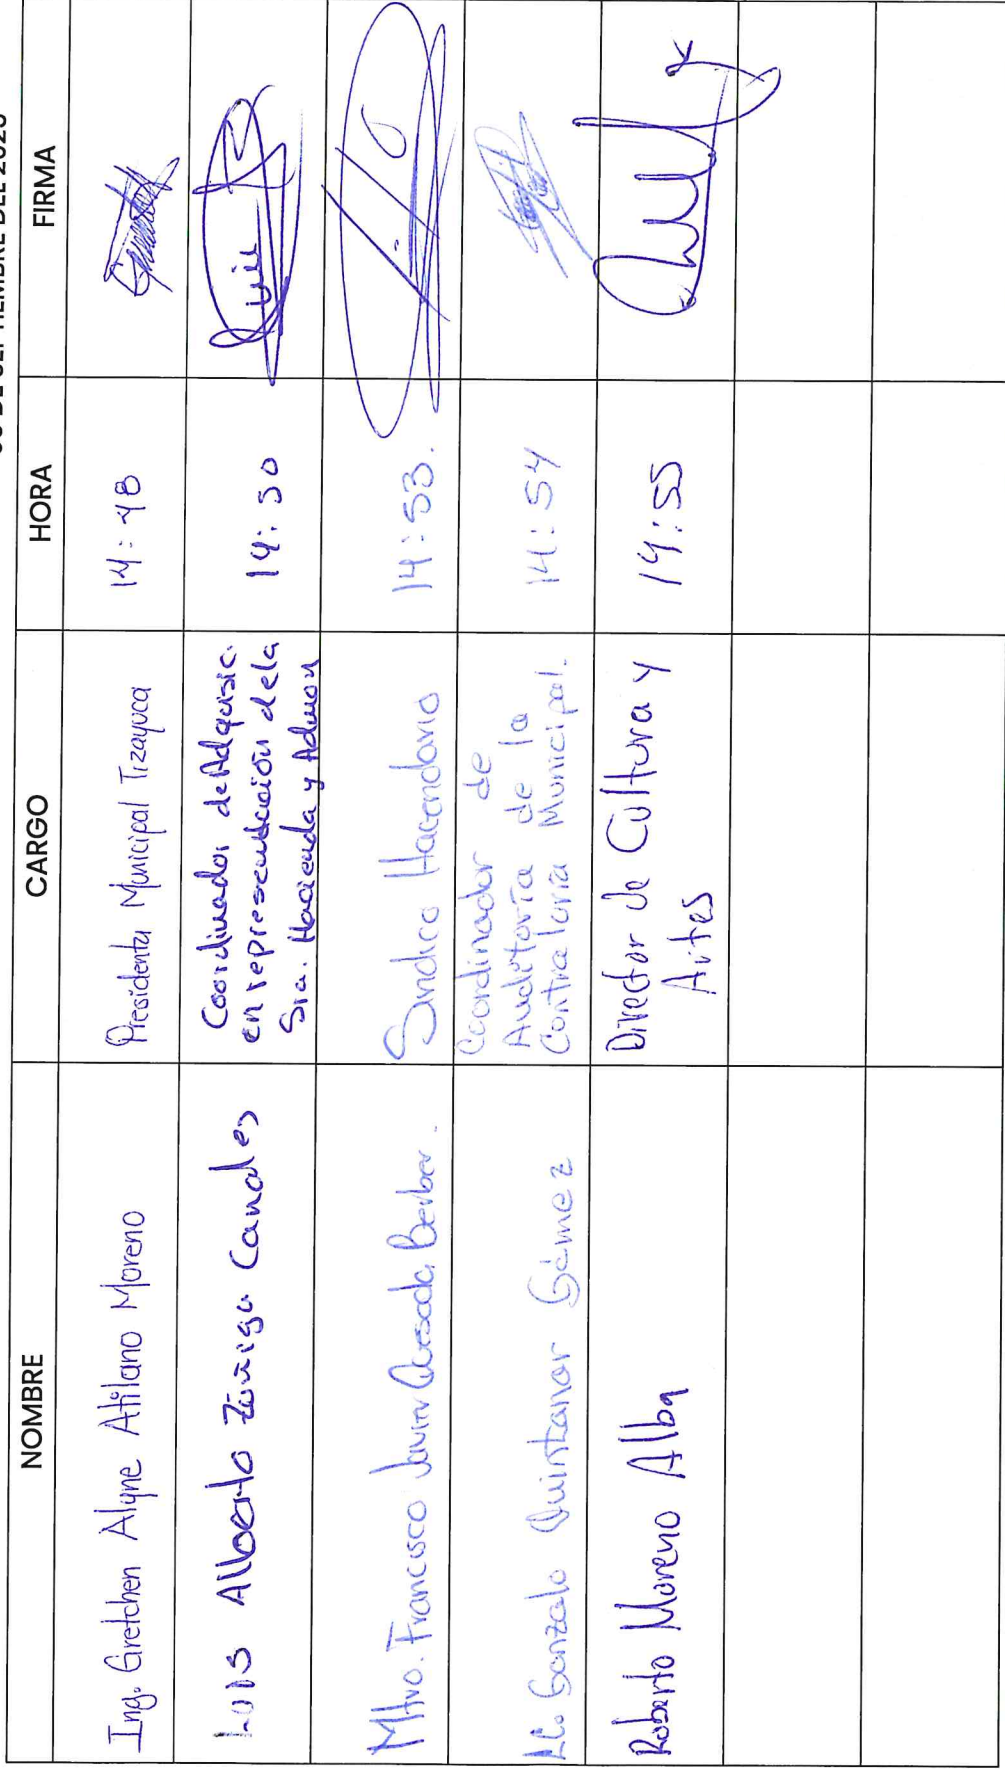 NOMBRE CARGO HORA FIRMA
Ing. Gretchen Alyne Atilano Moreno Presidenta Municipal Tizayuca 14:48
Luis Alberto Zúñiga Canales Coordinador de Adquisic. 14:50
en representación de la
Sra. Hacienda y Admon
Mtro. Francisco Javier Quesada Berber. Sindico Hacendario 14:53.
LC. Gonzalo Quintanar Gómez Coordinador de 14:54
Auditoría de la
Contraloría Municipal.
Roberto Moreno Alba Director de Cultura y 14:55
Artes